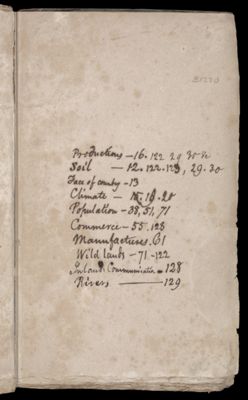 Productions - 16. 122 29 30 &c
Soil - 12. 122. 123, 29. 30
Face of country - 13
Climate - 18. 20
Population - 38, 51, 71
Commerce - 55. 128
Manufactures. 61
Wild lands - 71 - 122
Inland Communication - 128
Rivers - 129